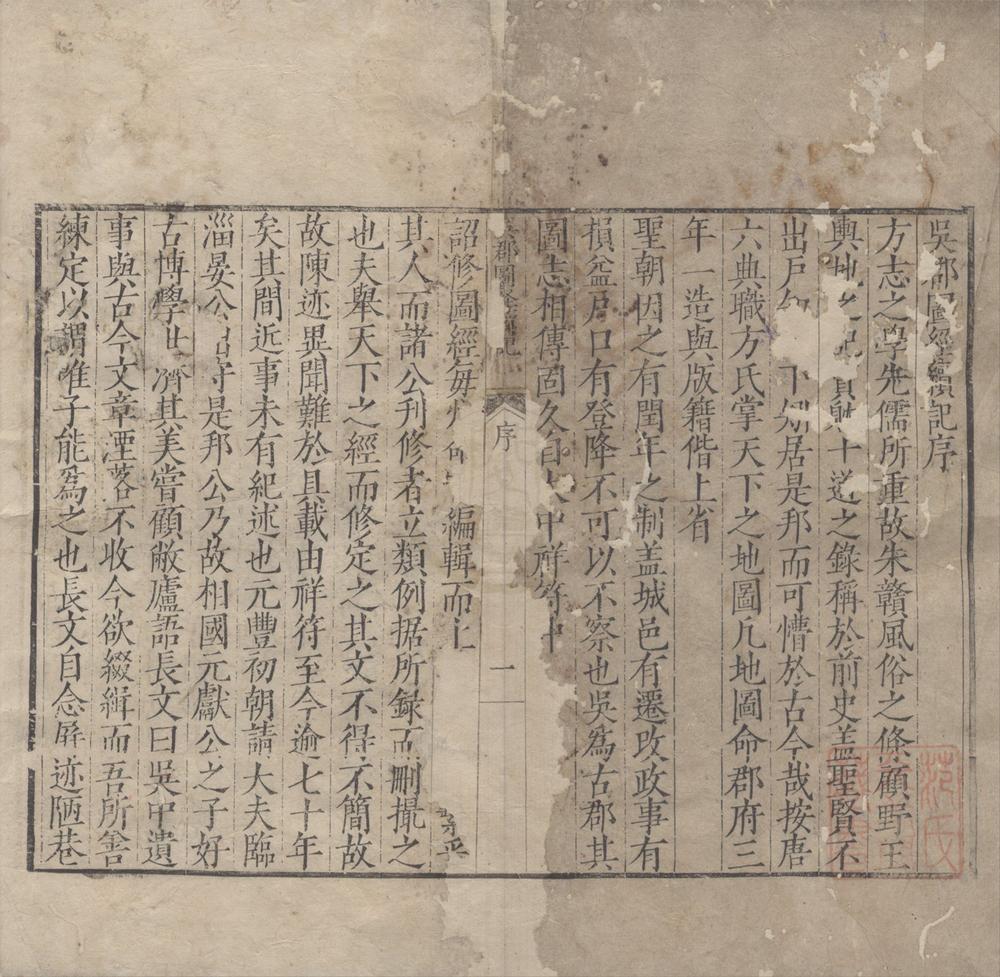 吳郡圖經續記序
方志之學先儒所重故朱贛風俗之條顧野王
輿地之記貞觀十道之錄稱於前史盖聖賢不
出戶知天下矧居是邦而可懵於古今哉按唐
六典職方氏掌天下之地圖凡地圖命郡府三
年一造與版籍偕上省
聖朝因之有閏年之制盖城邑有遷改政事有
損益戶口有登降不可以不察也吳為古郡其
圖志相傳固久自大中祥符中
郡圖經續記
序
一
詔修圖經每州命編輯而上
其人而諸公刋修者立類例据所録而刪撮之
也夫舉天下之經而修定之其文不得不簡故
故陳迹異聞難於具載由祥符至今逾七十年
矣其間近事未有紀述也元豐初朝請大夫臨
淄晏公出守是邦公乃故相國元獻公之子好
古博學世濟其美嘗顧敝廬語長文曰吳中遺
事與古今文章湮落不收今欲綴緝而吾所善
練定以謂唯子能為之也長文自念屏迹陋巷